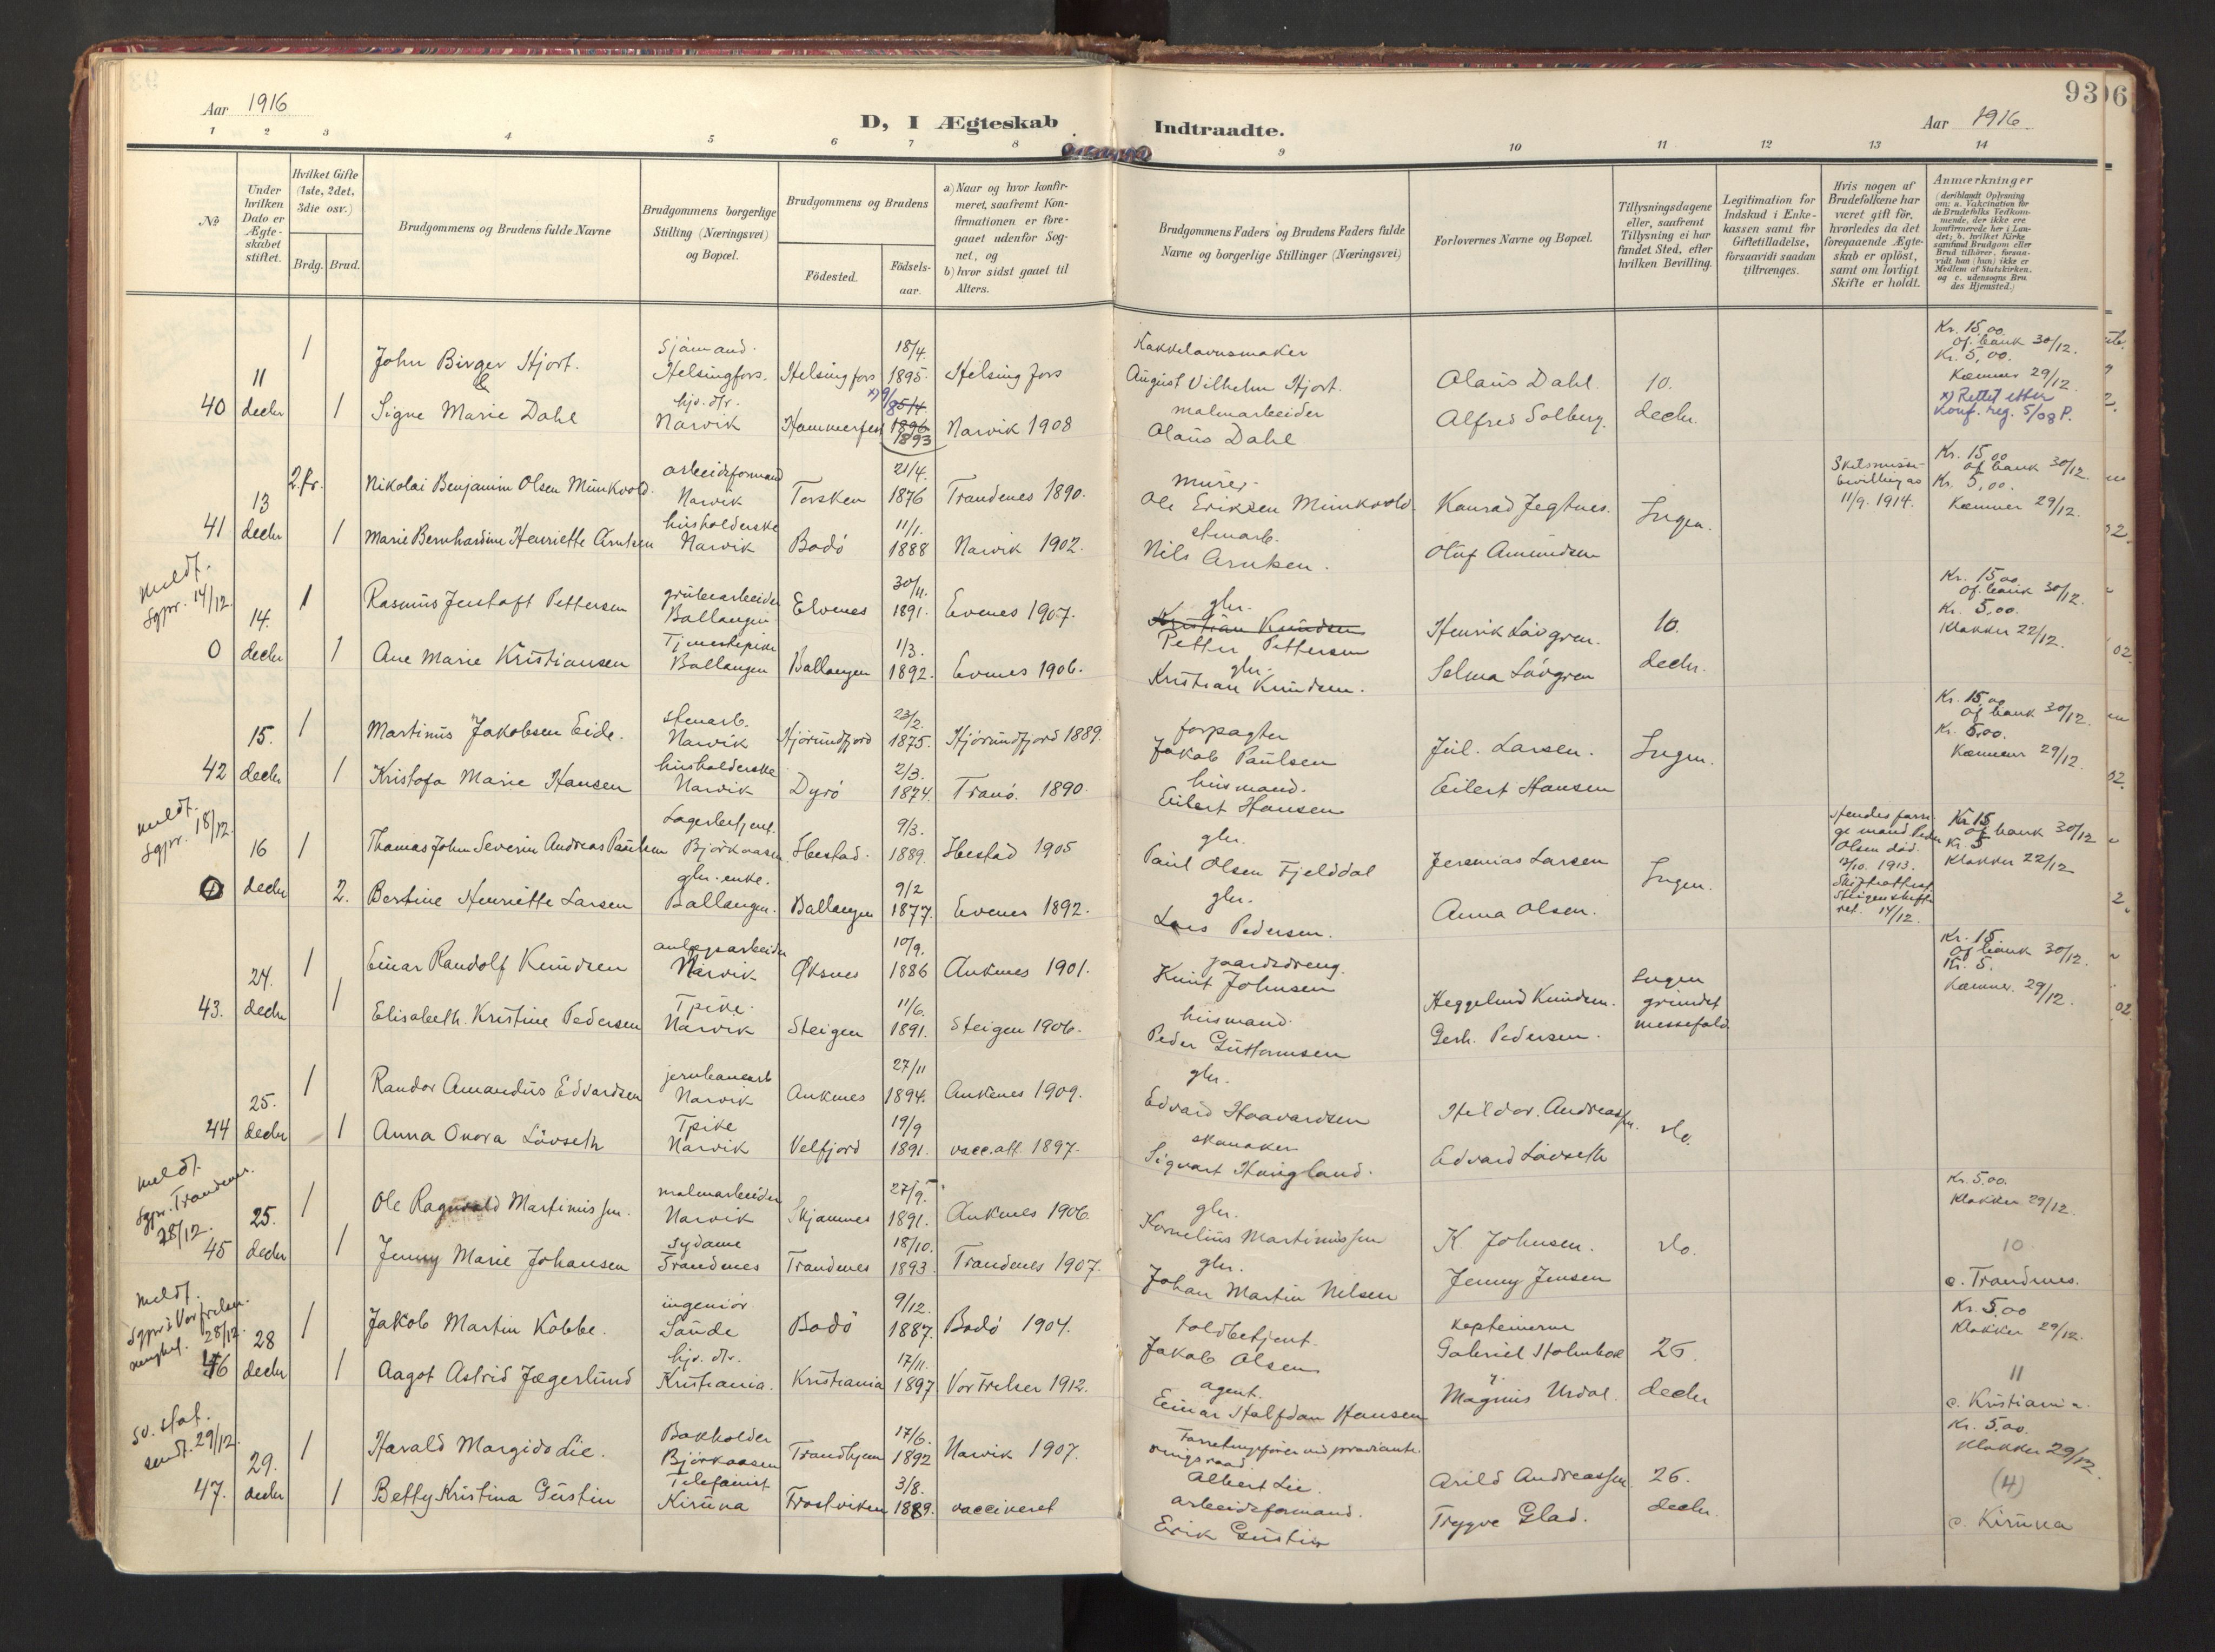 93
Aar 1916
D, I Ægteskab
Indtraadte.
Aar 1916
1 2 3 4 5 6 7 8 9 10 11 12 13 14
No
Under hvilken Dato er Ægteskabet stiftet.
Hvilket Gifte (1ste, 2det, 3die osv.)
Brdg. Brud.
Brudgommens og Brudens fulde Navne
Brudgommens borgerlige Stilling (Næringsvei) og Bopæl.
Brudgommens og Brudens
Födested.
Födselsaar.
a) Naar og hvor konfirmeret, saafremt Konfirmationen er foregaaet udenfor Sognet, og
b) hvor sidst gaaet til Alters.
Brudgommens Faders og Brudens Faders fulde Navne og borgerlige Stillinger (Næringsvei)
Forlovernes Navne og Bopæl.
Tillysningsdagene eller, saafremt Tillysning ei har fundet Sted, efter hvilken Bevilling.
Legitimation for Indskud i Enkekassen samt for Giftetilladelse, forsaavidt saadan tiltrænges.
Hvis nogen af Brudefolkene har været gift för, hvorledes da det foregaaende Ægteskab er oplöst, samt om lovligt Skifte er holdt.
Anmærkninger
(deriblandt Oplysning om: a. Vakcination for de Brudefolks Vedkommende, der ikke ere konfirmerede her i Landet; b. hvilket Kirkesamfund Brudgom eller Brud tilhörer, forsaavidt han (hun) ikke er Medlem af Statskirken, og c. udensogns Brudes Hjemsted.)
40 11 decbr
1 John Birger Hjort. Sjömand. Helsingfors. Helsingfors 18/4. 1895. Helsingfors
&
1 Signe Marie Dahl hjv. dtr. Narvik Hammerfest 1896 1893 Narvik 1908
Kakkelovnsmaker August Vilhelm Hjort.
malmarbeider Olaus Dahl
Olaus Dahl.
Alfred Solberg.
10. decbr.
Kr. 15,00. of. bank 30/12.
Kr. 5,00. Kæmner 29/12.
x) Rettet efter Konf. reg. 5/08 P.
41 13 decbr
2. fr. Nikolai Benjamin Olsen Munkvold. arbeidsformand Narvik Torsken 21/4. 1876 Trondenes 1890.
1 Marie Bernhardine Henriette Arntsen husholderske Narvik Bodö 11/1. 1888 Narvik 1902.
murer. Ole Eriksen Munkvold.
stenarb. Nils Arntsen.
Konrad Jegtnes.
Oluf Amundsen
Ingen.
Skilsmissebevilling as 11/9. 1914.
Kr. 15,00 of bank 30/12.
Kr. 5,00. Kæmner 29/12.
meldt. Sgpr. 14/12.
0 14. decbr
1 Rasmus Justoft Pettersen grubearbeider Ballangen Elvenes 30/11. 1891. Evenes 1907.
1 Ane Marie Kristiansen Tjenestepike Ballangen Ballangen 1/3. 1892. Evenes 1906.
gbr. Kristian Knudsen Petter Pettersen
gbr. Kristian Knudsen.
Henrik Lövgren.
Selma Lövgren
10. decbr.
Kr. 15,00. of. bank 30/12.
Kr. 5,00. Klokker 22/12.
42 15. decbr
1 Martinus Jakobsen Eide. stenarb. Narvik Hjörundfjord 23/2. 1875. Hjörundfjord 1889.
1 Kristofa Marie Hansen husholderske Narvik Dyrö 2/3. 1874. Tranö. 1890.
forpagter Jakob Paulsen
husmand. Eilert Hansen
Jul. Larsen.
Eilert Hansen
Ingen.
Kr. 15,00 of bank 30/12.
Kr. 5,00. Kæmner 29/12.
meldt. Sgpr. 18/12.
0 16 decbr
1 Thomas John Severin Andreas Paulsen Lagerbetjent. Björkaasen Ibestad. 9/3. 1889. Ibestad 1905
2. Bertine Henriette Larsen gbr. enke. Ballangen. Ballangen 9/2 1877. Evenes 1892.
gbr. Paul Olsen Fjelddal
gbr. Lars Pedersen.
Jeremias Larsen
Anna Olsen.
Ingen.
Hendes forrige mand Peder Olsen död. 1913. Skifteattest 14/12.
Kr. 15 of bank 30/12
Kr. 5 Klokker 22/12
43. 24. decbr
1 Einar Randolf Knudsen anlægsarbeider Narvik Öksnes 10/9. 1886 Ankenes 1901.
1 Elisabeth Kristine Pedersen Tpike. Narvik Steigen 11/6. 1891. Steigen 1906.
gaardsdreng. Knut Johnsen
husmand. Peder Guttormsen
Heggelund Knudsen.
Gerh. Pedersen.
Ingen grundet messefald
Kr. 15 of bank 30/12.
Kr. 5. Kæmner. 29/12.
44 25. decbr
1 Randor Amandus Edvardsen jernbanearb Narvik Ankenes 27/11 1894. Ankenes 1909.
1 Anna Onora Lövseth Tpike Narvik Velfjord 19/9 1891. vacc. att. 1897.
gbr. Edvard Haavardsen
skomaker Sigvart Haugland.
Hildor. Andreassen.
Edvard Lövseth
do.
meldt. Sgpr. Trondenes. 28/12.
45 25. decbr
1 Ole Ragnvald Martinussen. malmarbeider Narvik Skjomnes 27/9. 1891. Ankenes 1906.
1 Jenny Marie Johansen sydame Trondenes Trondenes 18/10. 1893. Trondenes 1907.
gbr. Kornelius Martinussen
gbr. Johan Martin Nilsen
K. Johnsen.
Jenny Jensen
do.
Kr. 5,00. Klokker 29/12.
10
c. Trondenes.
meldt. Sgpr i Vor frelsers menighet. 28/12.
46 28 decbr
1 Jakob Martin Kobbe. ingeniör Sande Bodö 9/12. 1887. Bodö 1904.
1 Aagot Astrid Jægerlund hjv. dtr. Kristiania. Kristiania 17/11. 1897 Vor Frelser 1912.
toldbetjent. Jakob Olsen
agent. Einar Halfdan Hansen
kapteinerne Gabriel Holmbok
Magnus Urdal.
26. decbr
Kr. 5,00 Klokker 29/12.
11
c. Kristiania.
sv. stat. sendt. 29/12.
47. 29. decbr
1 Harald Margido Lie. Bokholder Björkaasen Trondhjem 17/6. 1892 Narvik 1907.
1 Betty Kristina Gustin Telefonist Kiruna Frostviken 3/8. 1889. vaccineret
Albert Lie.
arbeidsformand. Erik Gustin
Arild Andreassen
Trygve Glad.
26. decbr.
Kr. 5,00. Klokker 29/12.
(4)
c. Kiruna